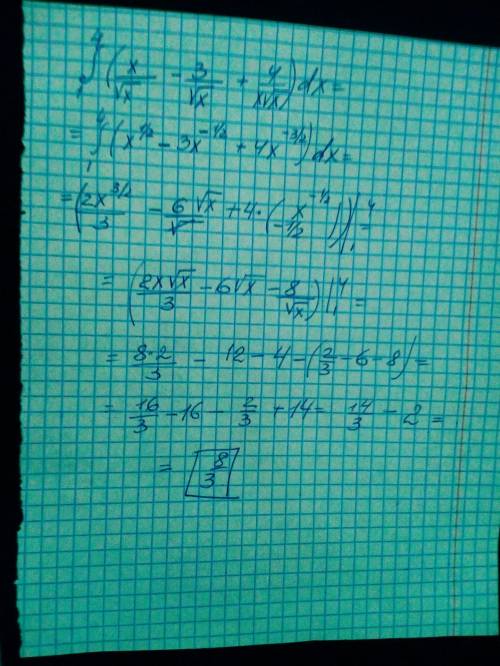 ∫₁⁴ (x/√x - 3/√x + 4/(x√x)) dx =
= ∫₁⁴ (x^(1/2) - 3x^(-1/2) + 4x^(-3/2)) dx =
= (2x^(3/2)/3 - 6√x + 4·(x^(-1/2)/(-1/2)))|₁⁴ =
= (2x√x/3 - 6√x - 8/√x)|₁⁴ =
= 8·2/3 - 12 - 4 - (2/3 - 6 - 8) =
= 16/3 - 16 - 2/3 + 14 = 14/3 - 2 =
= 8/3